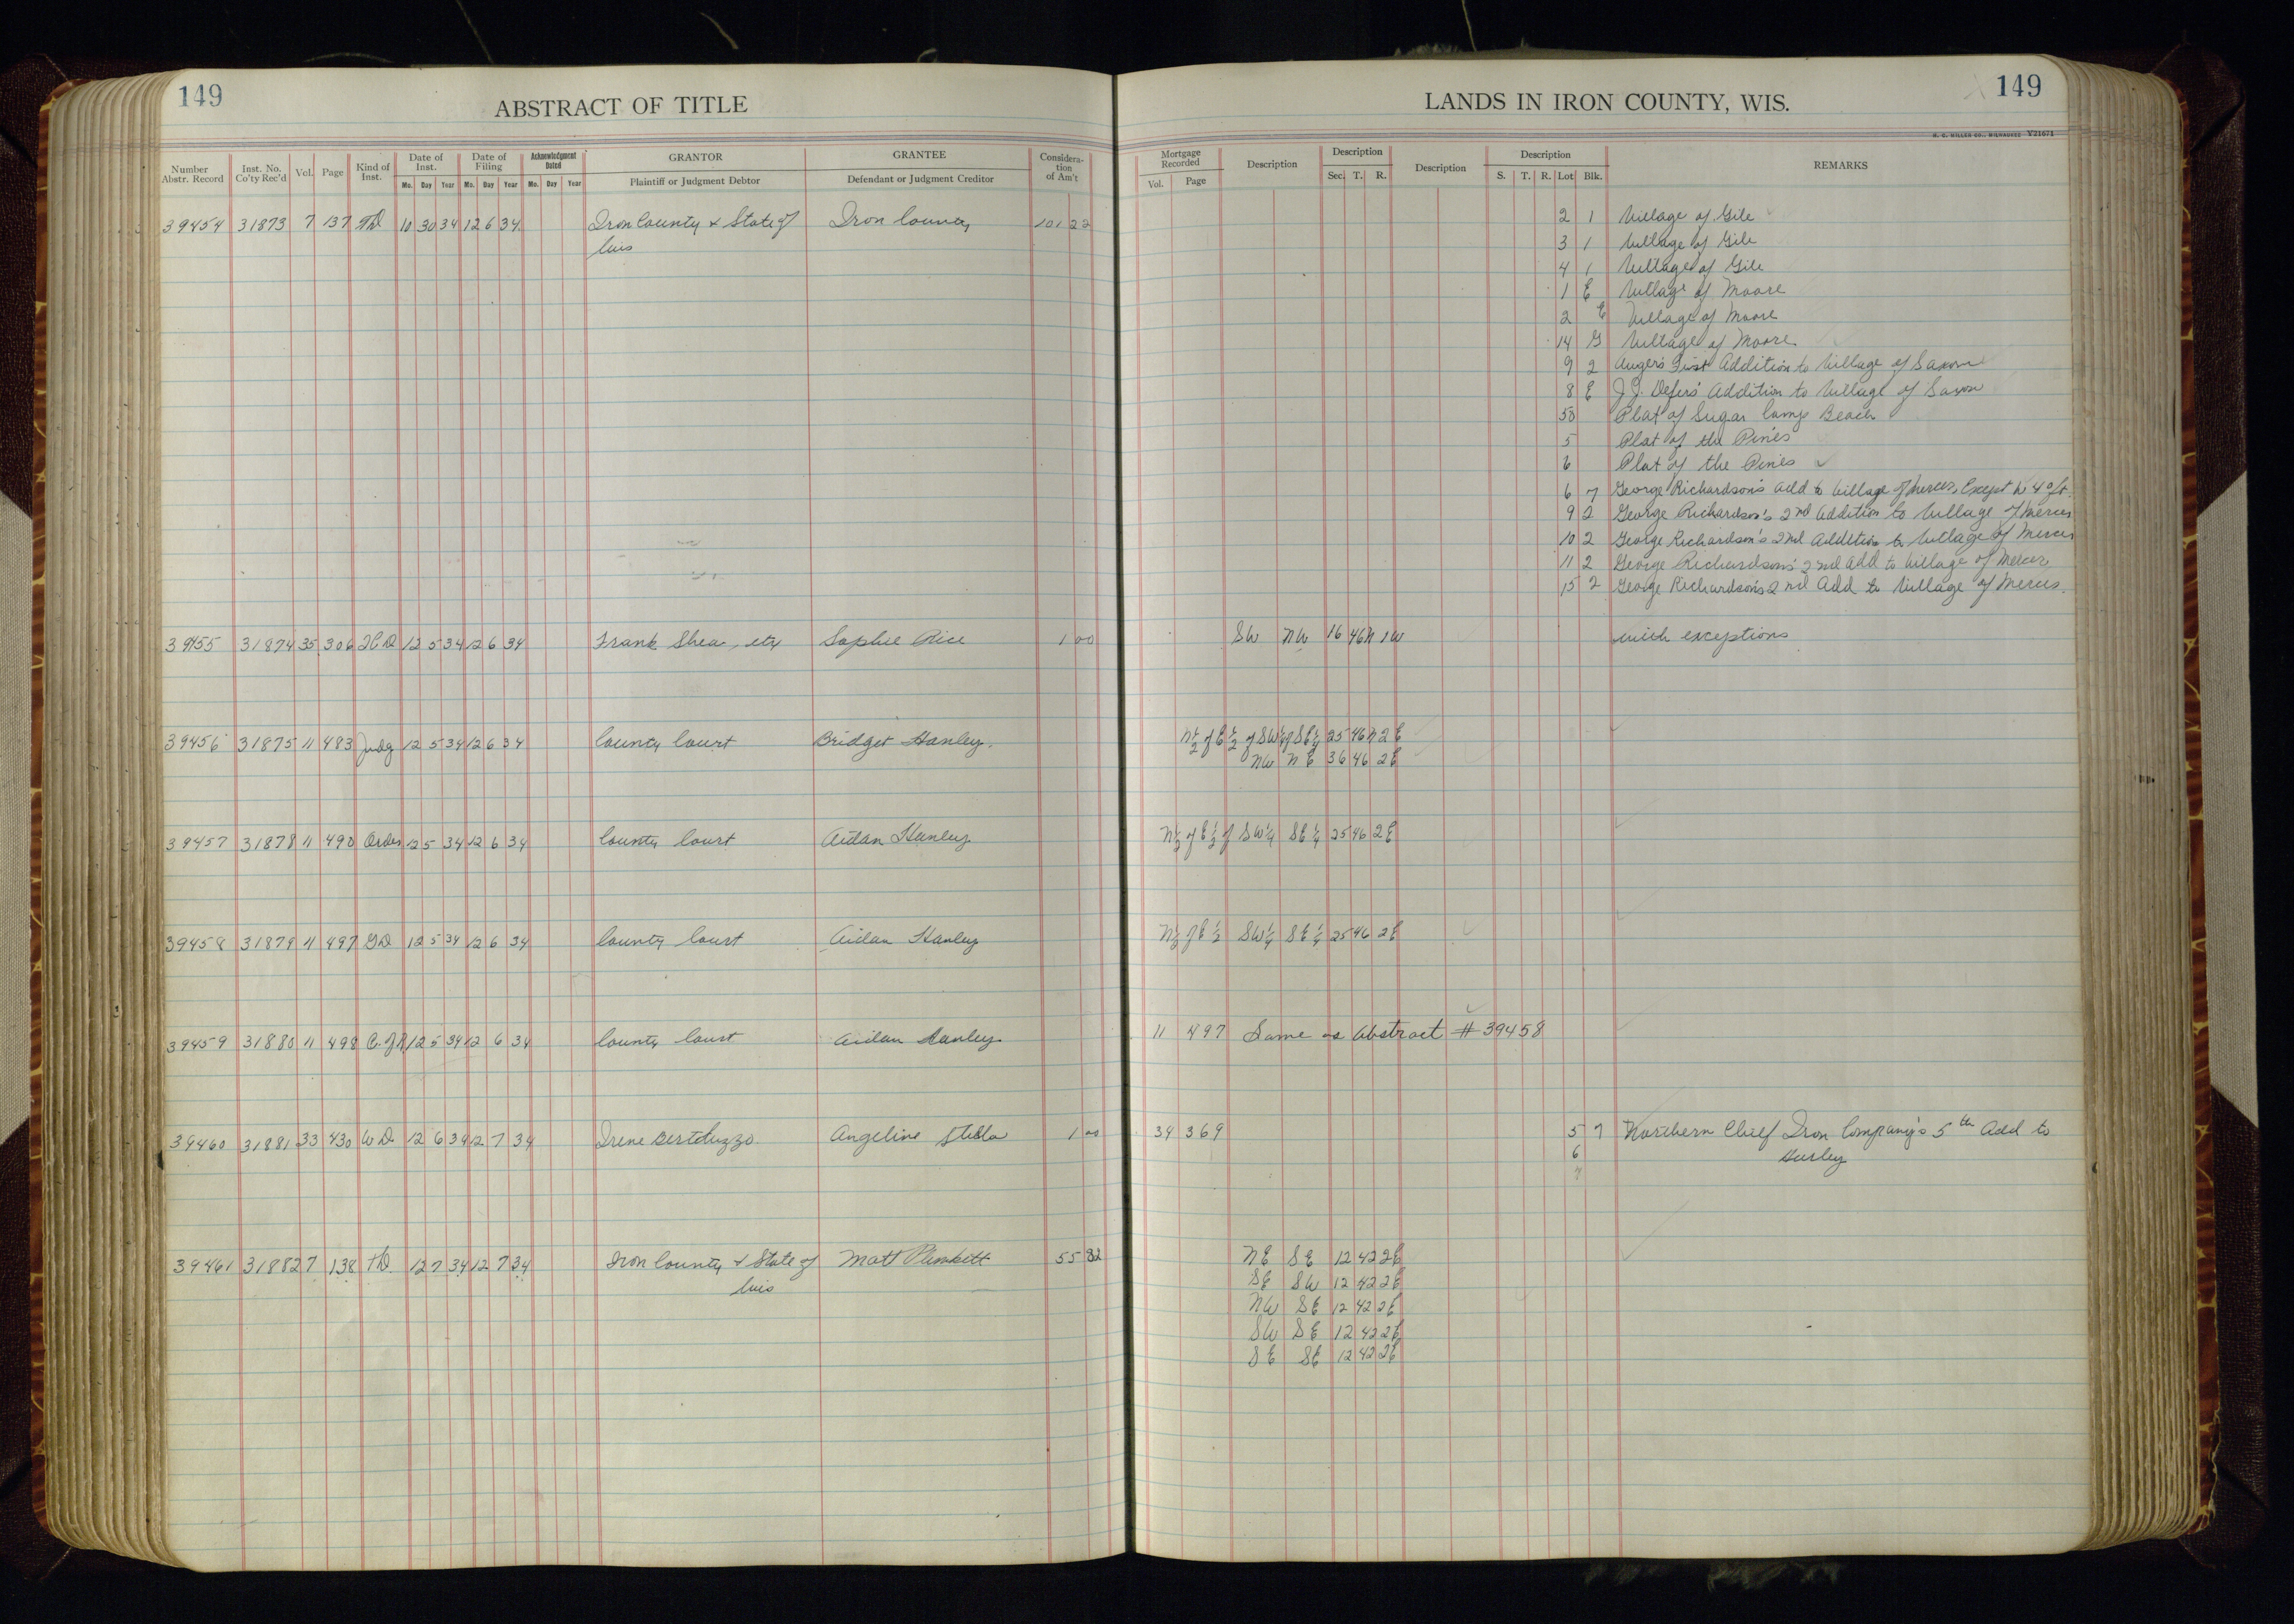 149
ABSTRACT OF TITLE
Number Abstr. Record | Inst. No. Co'ty Rec'd | Vol. | Page | Kind of Inst. | Date of Inst. Mo. Day Year | Date of Filing Mo. Day Year | Acknowledgment Dated Mo. Day Year | GRANTOR Plaintiff or Judgment Debtor | GRANTEE Defendant or Judgment Creditor | Consideration of Am't
39454 31873 7 137 TD 10 30 34 12 6 34 Iron County & State of Iron County 101 22
Wis
39455 31874 35 306 QCD 12 5 34 12 6 34 Frank Shea, etx Sophie Rice 1 00
39456 31875 11 483 Judg 12 5 34 12 6 34 County Court Bridget Hanley
39457 31878 11 490 Order 12 5 34 12 6 34 County Court Aidan Hanley
39458 31879 11 497 GD 12 5 34 12 6 34 County Court Aidan Hanley
39459 31880 11 498 12 5 34 12 6 34 County Court Aidan Hanley
39460 31881 33 430 WD 12 6 34 12 7 34 Irene Bertoluzzo Angeline Stella 1 00
39461 31882 7 138 TD 12 7 34 12 7 34 Iron County & State of Matt Plunkett 55 82
Wis
149
LANDS IN IRON COUNTY, WIS.
H. C. MILLER CO., MILWAUKEE Y21671
Mortgage Recorded Vol. Page | Description | Description Sec. T. R. | Description | Description S. T. R. Lot Blk. | REMARKS
2 1 Village of Gile
3 1 Village of Gile
4 1 Village of Gile
1 E Village of Moore
2 E Village of Moore
14 G Village of Moore
9 2 Auger's First Addition to Village of Saxon
8 E J.J. Defers' Addition to Village of Saxon
50 Plat of Sugar Camp Beach
5 Plat of the Pines
6 Plat of the Pines
6 7 George Richardson's add to Village of Mercer, Except W 40 ft.
9 2 George Richardson's 2nd Addition to Village of Mercer
10 2 George Richardson's 2nd Addition to Village of Mercer
11 2 George Richardson's 2nd Add to Village of Mercer
15 2 George Richardson's 2nd Add to Village of Mercer.
SW NW 16 46N 1W with exceptions
N½ of E½ of SW¼ of SE¼ 25 46N 2E
NW NE 36 46 2E
N½ of E½ of SW¼ SE¼ 25 46 2E
N½ of E½ SW¼ SE¼ 25 46 2E
11 497 Same as Abstract # 39458
34 369 5 7 Northern Chief Iron Company's 5th Add to
6 Hurley
7
NE SE 12 42 2E
SE SW 12 42 2E
NW SE 12 42 2E
SW SE 12 42 2E
SE SE 12 42 2E